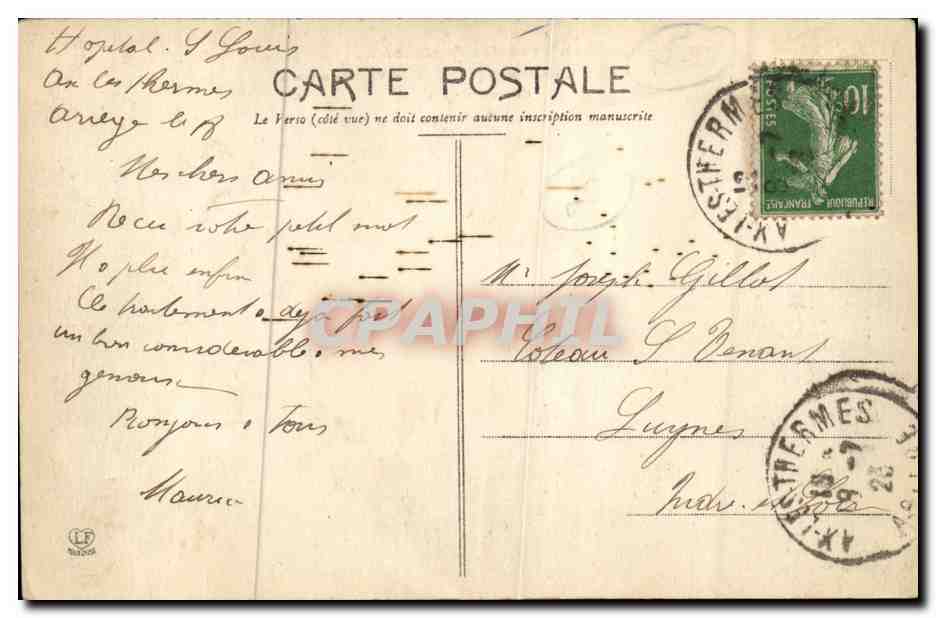 Hopital S Louis
Ax les thermes
Ariege le 8
Mes chers amis
Recu votre petit mot
Il a plu enfin
Ce traitement a deja fait
un bien considerable a mes
genoux
Bonjour a tous
Maurice
CARTE POSTALE
Le Verso (côté vue) ne doit contenir aucune inscription manuscrite
Mr Joseph Gillot
Coteau S Venant
Luynes
Indre et Loire
10
POSTES
REPUBLIQUE FRANÇAISE
AX-LES-THERMES
AX-LES-THERMES
9-7
23
LF
CPAPHIL